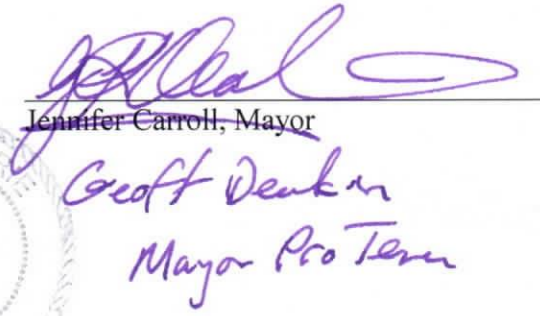 Jennifer Carroll, Mayor
Geoff
Mayor Pro Tem